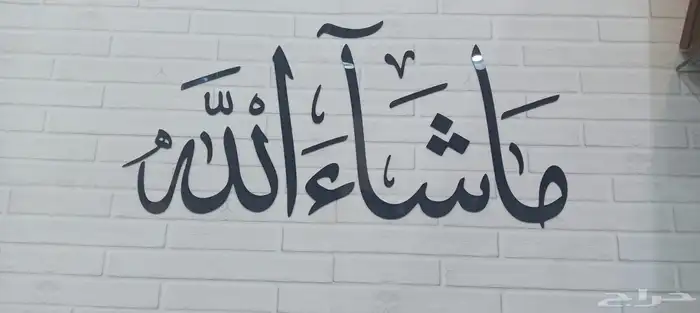 مَا شَآءَ اللَّهُ
حراج